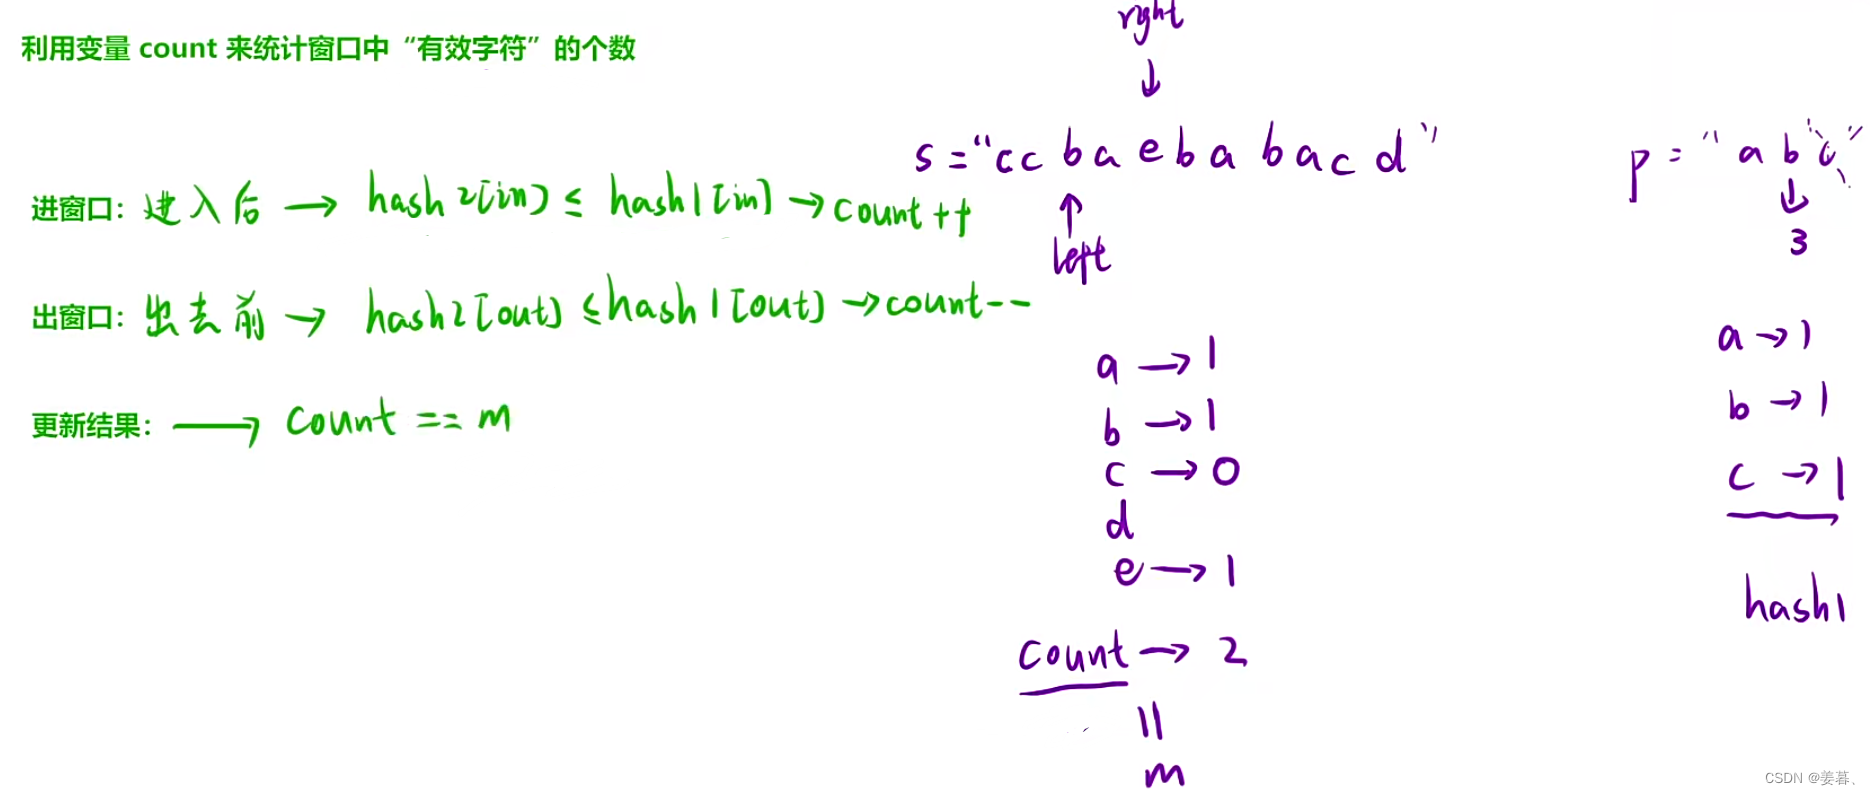 利用变量 count 来统计窗口中“有效字符”的个数
进窗口：进入后 → hash2[in] ≤ hash1[in] → count++
出窗口：出去前 → hash2[out] ≤ hash1[out] → count--
更新结果： → count == m
right
↓
s = "ccbaebabacd"
↑
left
a → 1
b → 1
c → 0
d
e → 1
count → 2
||
m
p = "abc"
↓
3
a → 1
b → 1
c → 1
hash1
CSDN @姜暮、